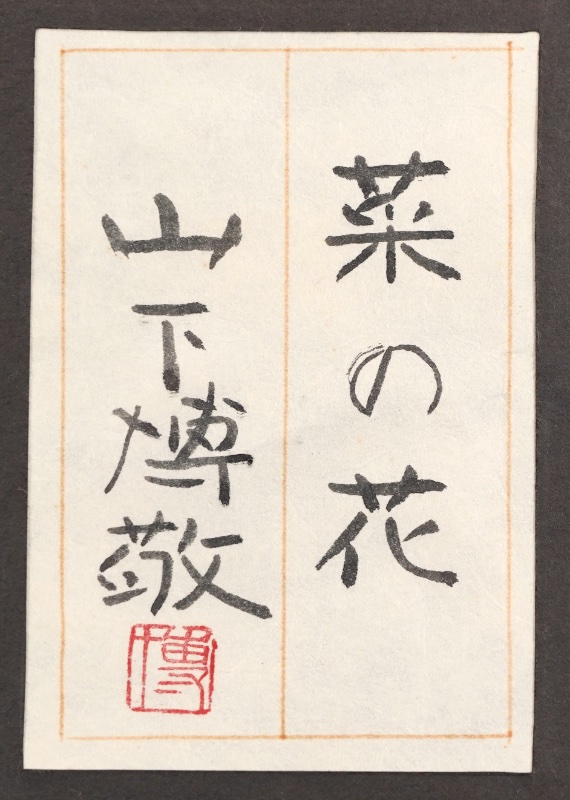 菜の花
山下博敬
博